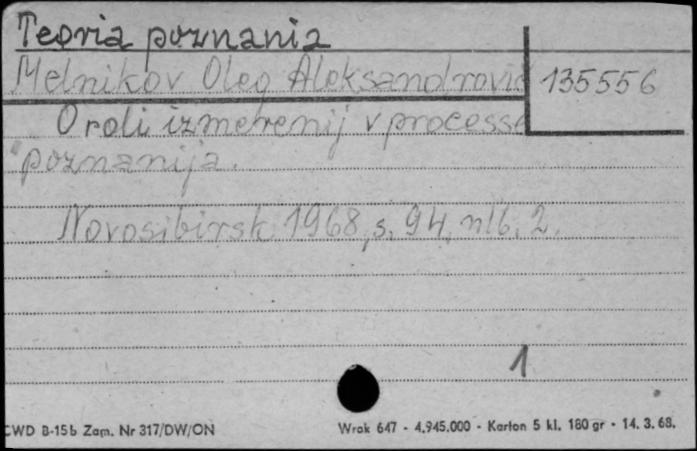 Teoria poznania
Melnikov Oleg Aleksandrovič 135556
O roli izmerenij v processe
poznanija.
Novosibirsk 1968, s. 94, nlb. 2.
1
CWD B-15b Zam. Nr 317/DW/ON Wrak 647 - 4.945.000 - Karton 5 kl. 180 gr - 14. 3. 68.